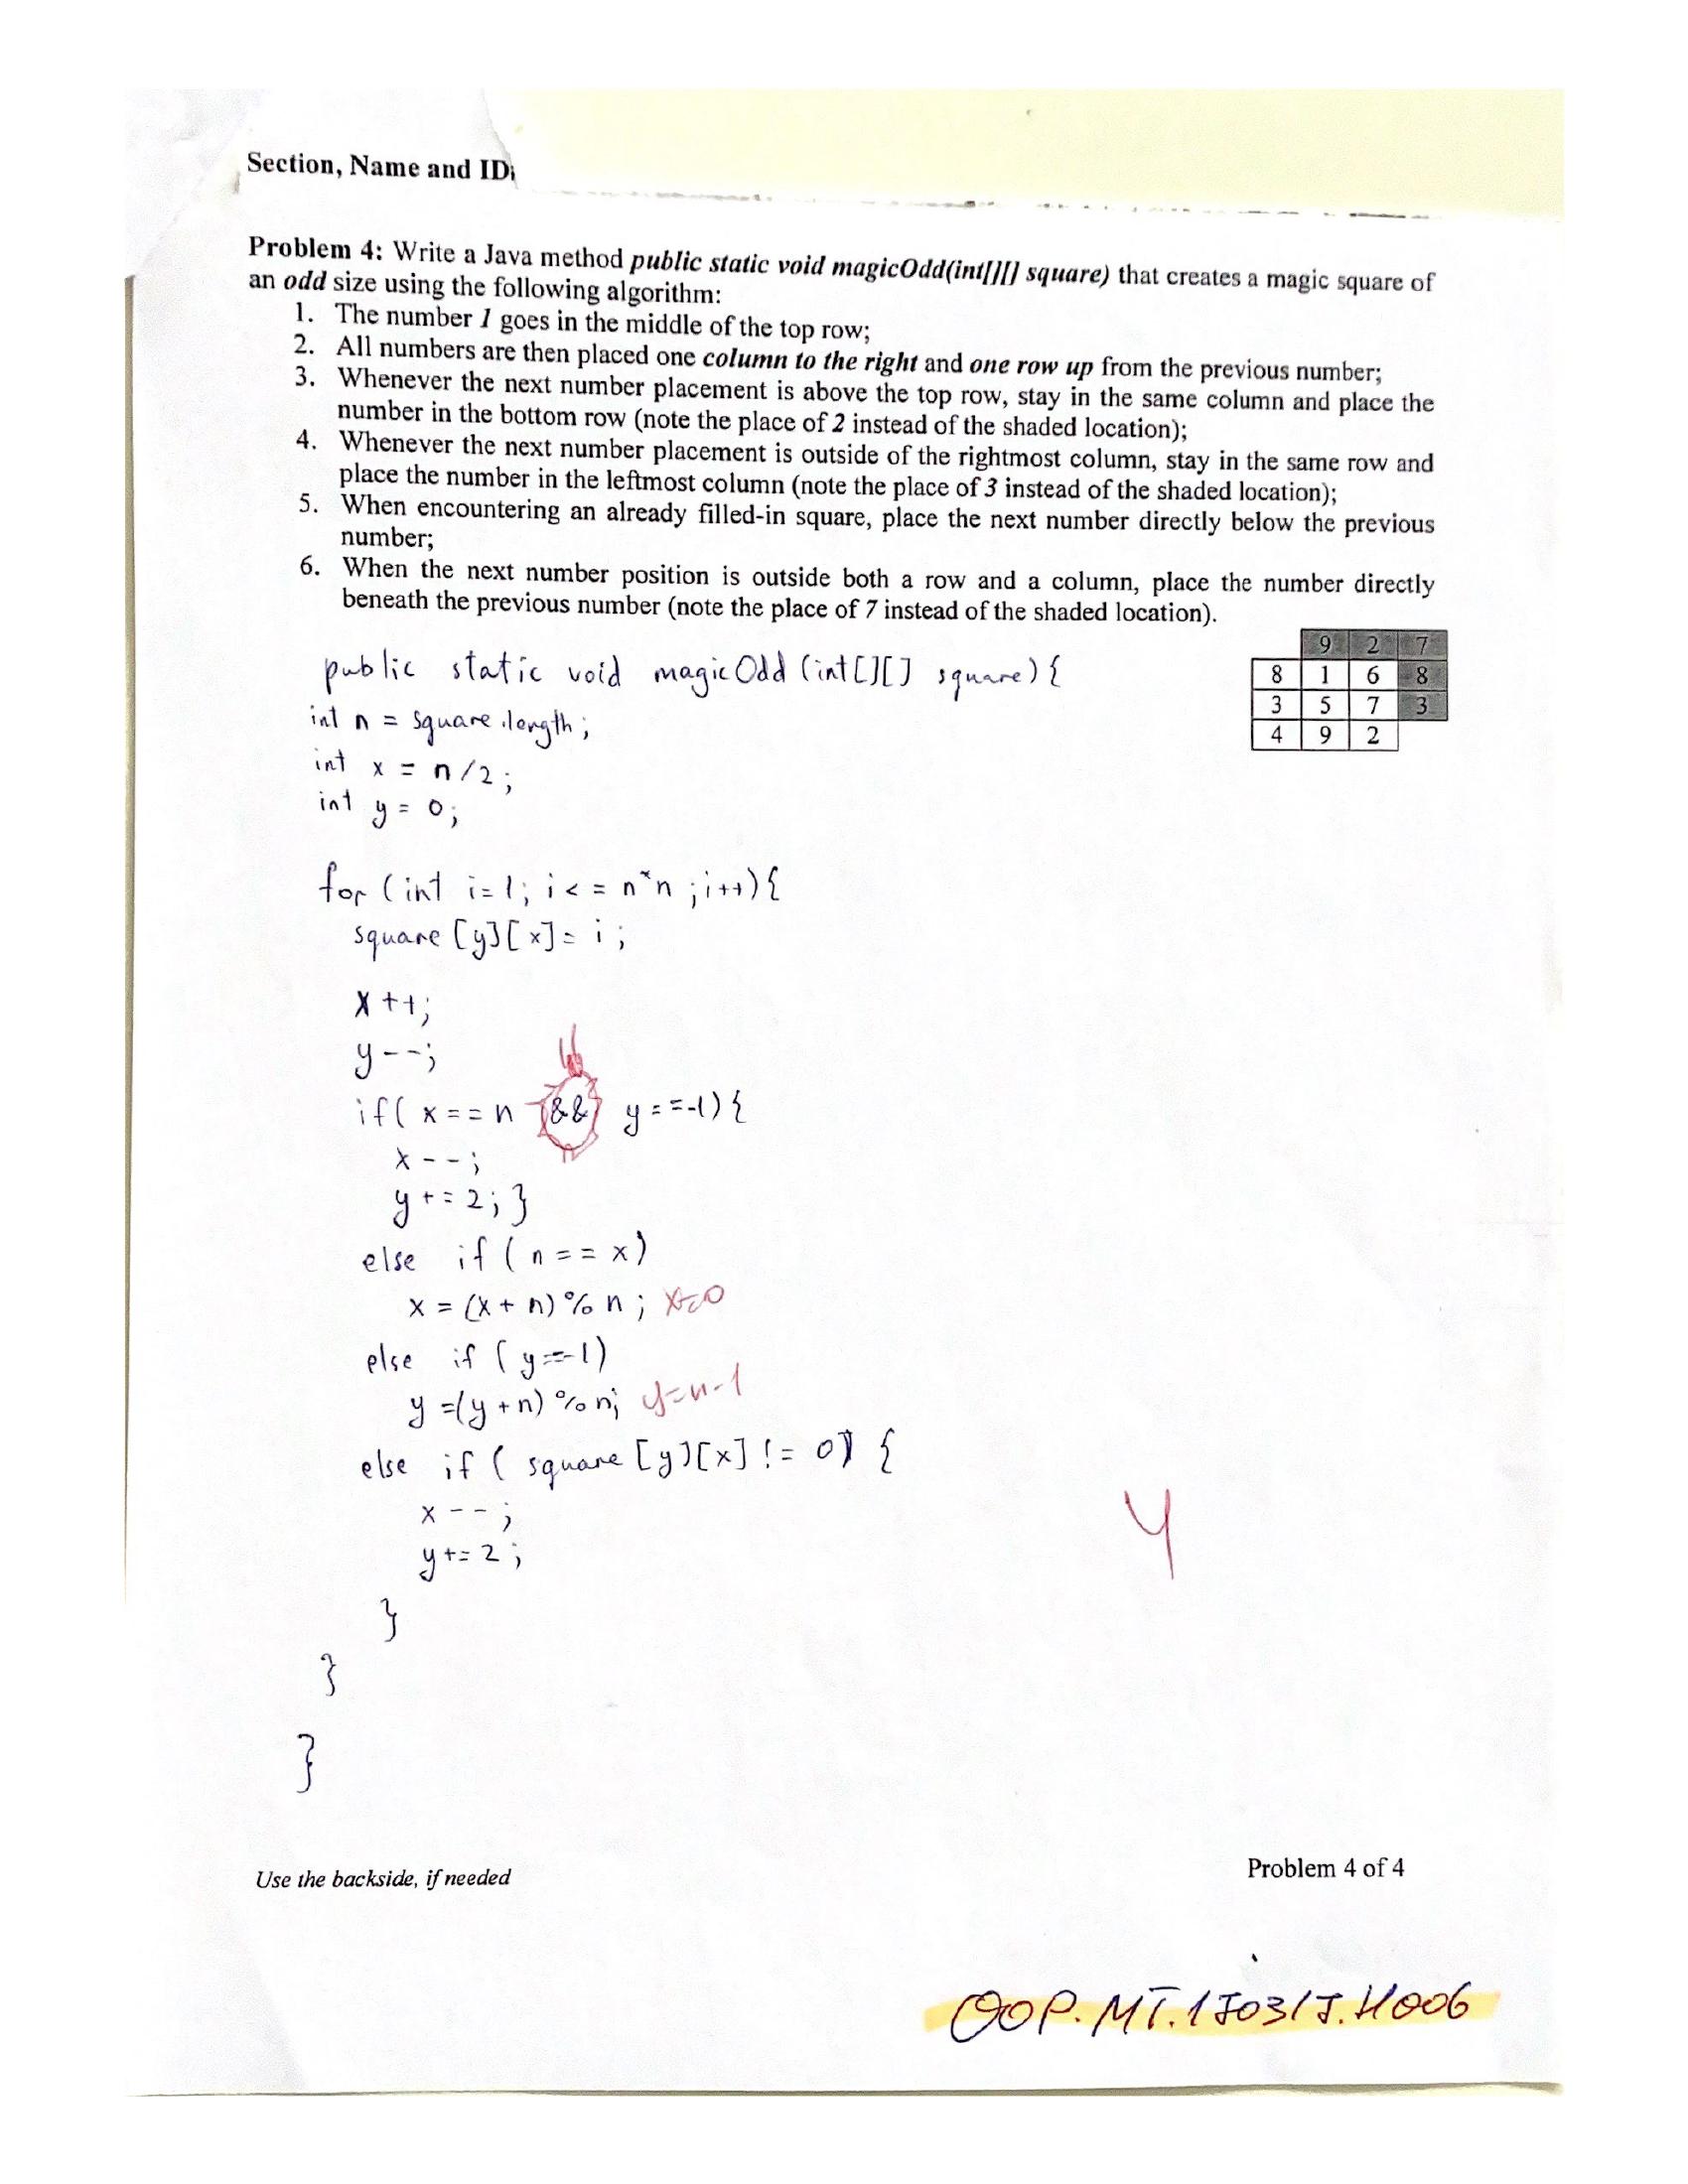 Section, Name and ID:
Problem 4: Write a Java method public static void magicOdd(int[][] square) that creates a magic square of
an odd size using the following algorithm:
1. The number 1 goes in the middle of the top row;
2. All numbers are then placed one column to the right and one row up from the previous number;
3. Whenever the next number placement is above the top row, stay in the same column and place the
number in the bottom row (note the place of 2 instead of the shaded location);
4. Whenever the next number placement is outside of the rightmost column, stay in the same row and
place the number in the leftmost column (note the place of 3 instead of the shaded location);
5. When encountering an already filled-in square, place the next number directly below the previous
number;
6. When the next number position is outside both a row and a column, place the number directly
beneath the previous number (note the place of 7 instead of the shaded location).
9 2 7
8 1 6 8
3 5 7 3
4 9 2
public static void magicOdd (int[][] square) {
int n = square.length;
int x = n/2;
int y = 0;
for (int i=1; i<=n*n; i++){
square[y][x]= i;
x++;
y--;
if( x==n && y==-1) {
x--;
y+=2; }
else if (n==x)
x = (x+n)%n; x=0
else if (y==-1)
y =(y+n)%n; y=n-1
else if ( square [y][x] != 0) {
x--;
y+=2;
}
}
}
4
Use the backside, if needed
Problem 4 of 4
OOP.MT.1503/5.H006